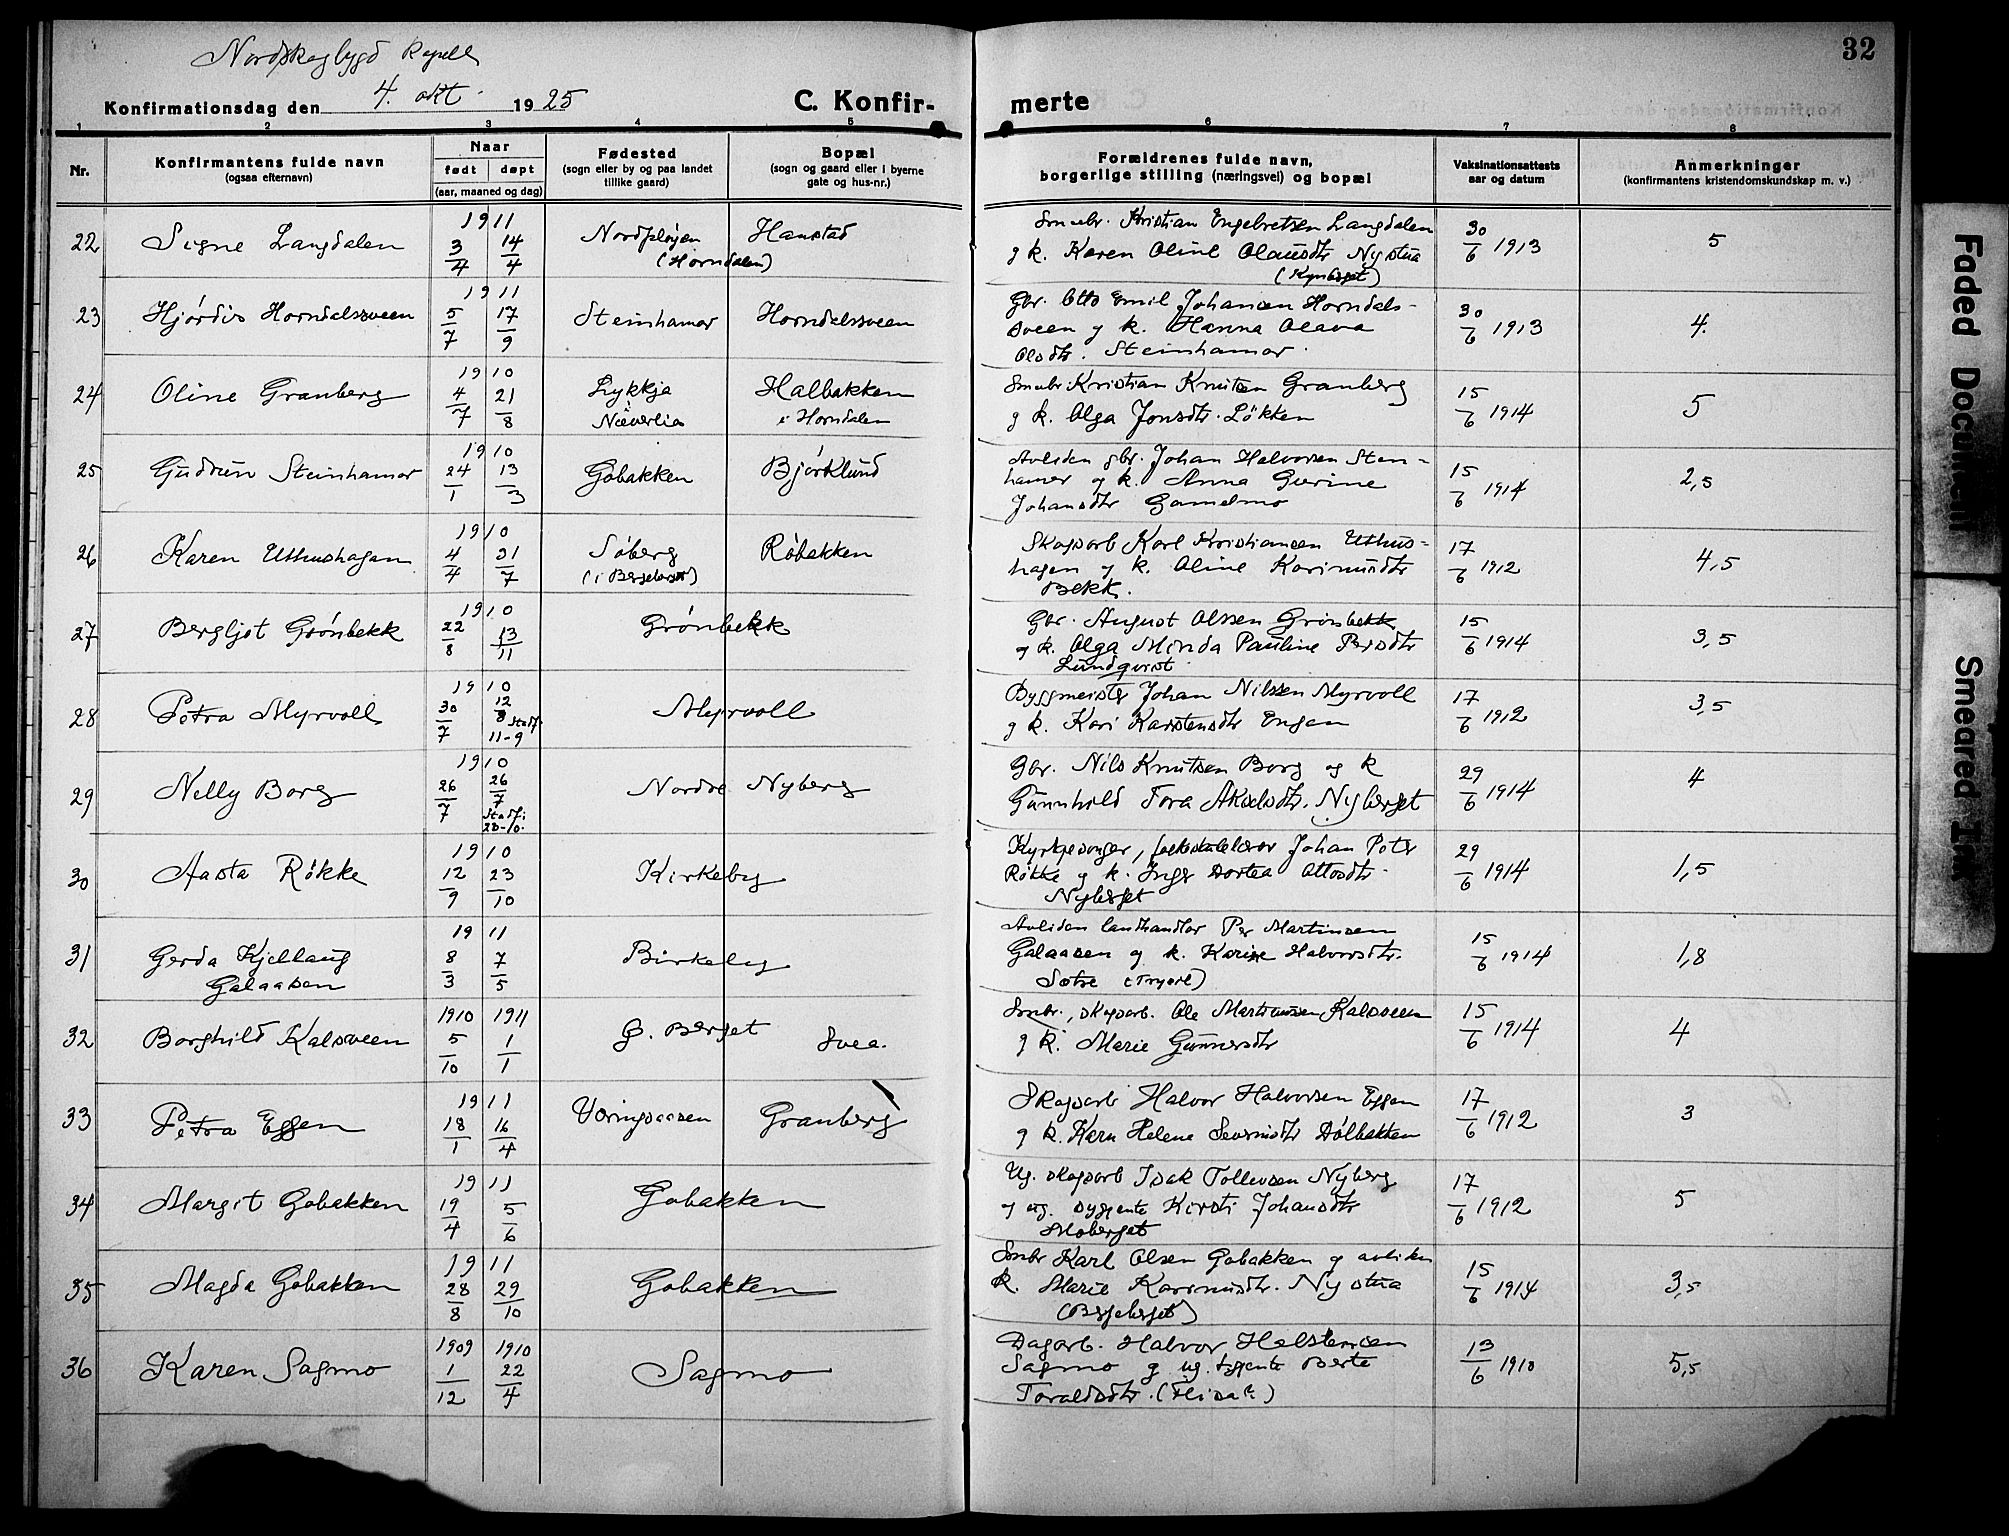 32
Konfirmationsdag den 4. okt. 1925
C. Konfirmerte
1 2 3 4 5 6 7 8
Nr.
Konfirmantens fulde navn
(ogsaa efternavn)
Naar
født døpt
(aar, maaned og dag)
Fødested
(sogn eller by og paa landet
tillike gaard)
Bopæl
(sogn og gaard eller i byerne
gate og hus-nr.)
Forældrenes fulde navn,
borgerlige stilling (næringsvei) og bopæl
Vaksinationsattests
aar og datum
Anmerkninger
(konfirmantens kristendomskundskap m. v.)
22 Signe Langdalen 1911 3/4 14/4 (Horndalen) Hanstad
Kristian Engebretsen Langdalen
k. Karen Oline Nystua
30/6 1913 5
23 Hjørdis Horndalssveen 1911 5/7 17/9 Steinhamar Horndalssveen
Gbr. Otto Emil Johansen Horndals-
sveen k. Hanna Olava
Olsdtr. Steinhamar.
30/6 1913 4.
24 Oline Granberg 1910 4/7 21/8 Lykkja Næverlia Halbakken i Horndalen
Smbr Kristian Knutsen Granberg
k. Olga Jonsdtr. Løkken
15/6 1914 5
25 Gudrun Steinhamar 1910 24/1 13/3 Gobakken Bjørklund
Avliden gbr. Johan Halvorsen Stein-
hamar og k. Anna Gurine
Johansdtr
15/6 1914 2,5
26 Karen Uthushagen 1910 4/4 31/7 Søberg Røbakken
Skogsarb Karl Kristiansen Uthus-
hagen k. Oline Karimusdtr
Bekk.
17/6 1912 4,5
27 Bergljot Grønbekk 1910 22/8 13/11 Grønbekk
Gbr. August Olssen Grønbekk
k. Olga Minda Pauline Persdtr
Lundqvist
15/6 1914 3,5
28 Petra Myrvoll 1910 30/7 12/8 Stadf. 11-9 Myrvoll
Byggmeister Johan Nilssen Myrvoll
k. Kari Karstensdtr Engen
17/6 1912 3,5
29 Nelly Borg 1910 26/7 26/7 Stadf: 23-10. Nordre Nyberg
Gbr. Nils Knutsen Borg og k
Gunnhild Tora Akselsdtr. Nyberget
29/6 1914 4
30 Aasta Røkke 1910 12/9 23/10 Kirkeby
Kyrkjesonger, folkeskulelærar Johan Peter
Røkke k. Inger Dortea Ottosdtr.
Nyberget
29/6 1914 1,5
31 Gerda Kjellaug
Galaasen 1911 8/3 7/5 Birkeby
Avliden landhandlar Per Martinsen
Galaasen og k. Karine Halvorsdtr.
Sætre (Trysil)
15/6 1914 1,8
32 Borghild Kalsveen 1910 5/10 1911 1/1 G. Berget Svea.
Smbr., skogsarb. Ole Martinsen Kalsveen
k. Marie Gunnersdtr
15/6 1914 4
33 Petra Eggen 1911 18/1 16/4 Væringsaasen Granberg
Skogsarb Halvor Halvorsen Eggen
k. Karn Helene Dølbakken
17/6 1912 3
34 Margit Gobakken 1911 19/4 5/6 Gobakken
Ug. skogsarb Isak Tollevsen Nyberg
ug. Kirsti Johansdtr
Moberget
17/6 1912 5
35 Magda Gobakken 1911 28/8 29/10 Gobakken
Smbr Karl Olsen Gobakken og avliden
k. Marie Karimusdtr. Nystua
(Bergeberget)
15/6 1914 3,5
36 Karen Sagmo 1909 1/12 1910 22/4 Sagmo
Dagarb. Halvor Halstensen
Sagmo og ug. Berte
Toraldsdtr. (Flisa?)
13/6 1910 5,5
Faded Document
Smeared Ink